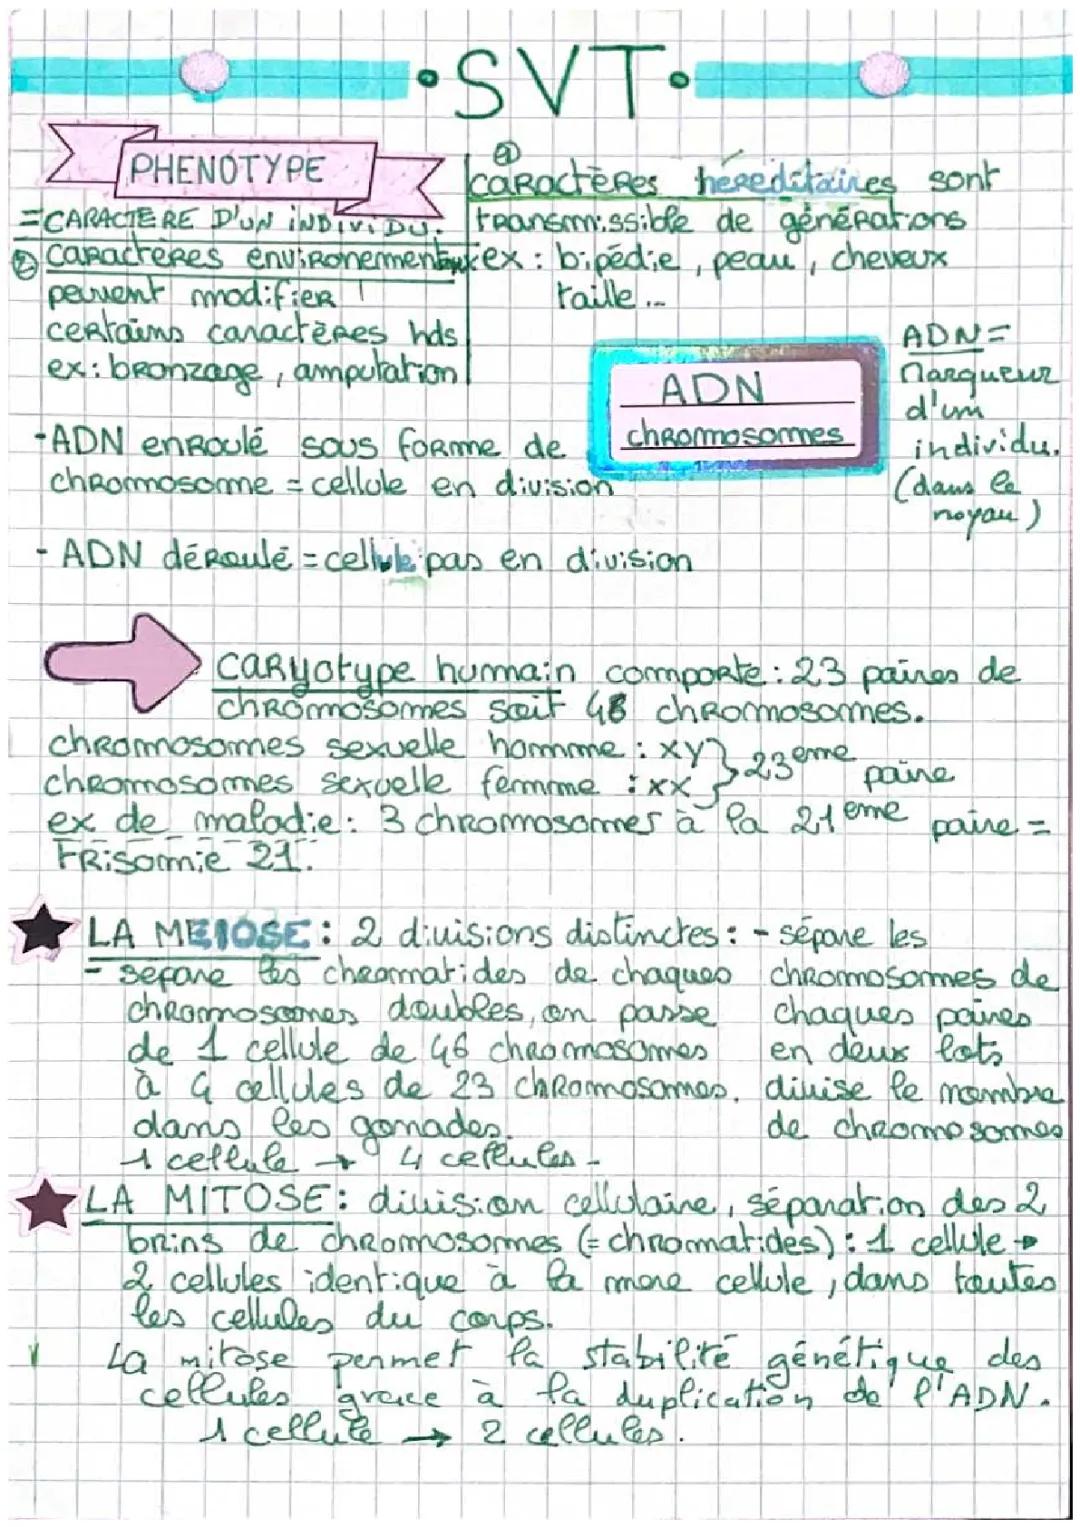 • SVT •
PHENOTYPE
= CARACTERE D'UN INDIVIDU.
① caractères héréditaires sont
transmissible de générations
ex : bipédie, peau, cheveux
taille...
② caractères environementaux
peuvent modifier
certains caractères hds
ex : bronzage, amputation
ADN
chromosomes
ADN =
Marqueur
d'un
individu.
(dans le
noyau)
- ADN enroulé sous forme de
chromosome = cellule en division
- ADN déroulé = cellule pas en division
caryotype humain comporte : 23 paires de
chromosomes soit 46 chromosomes.
chromosomes sexuelle homme : xy } 23eme paire
chromosomes sexuelle femme : xx
ex de maladie : 3 chromosomes à la 21eme paire =
Trisomie 21.
LA MEIOSE : 2 divisions distinctes : - sépare les
chromosomes de
chaques paires
en deux lots
divise le nombre
de chromosomes
- sépare les chromatides de chaques
chromosomes doubles, on passe
de 1 cellule de 46 chromosomes
à 4 cellules de 23 chromosomes.
dans les gonades.
1 cellule → 4 cellules -
LA MITOSE : division cellulaire, séparation des 2
brins de chromosomes (= chromatides) : 1 cellule →
2 cellules identique à la mere cellule, dans toutes
les cellules du corps.
La mitose permet la stabilité génétique des
cellules grace à la duplication de l'ADN.
1 cellule → 2 cellules.